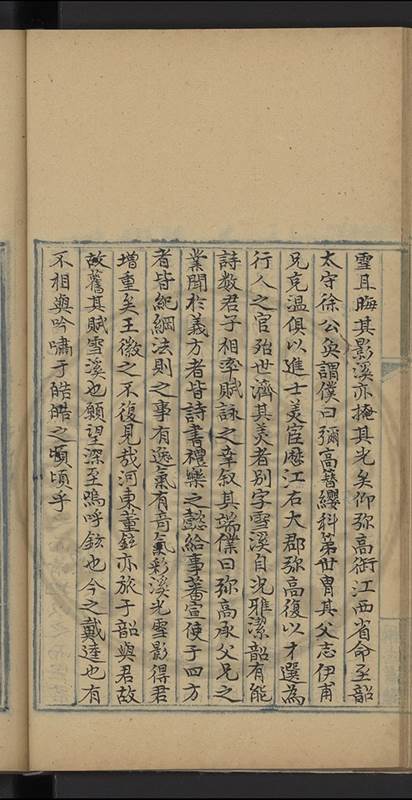 雪且晦其影溪亦掩其光矣仰弥高銜江西省命至韶
太守徐公奐謂僕曰彌高簪纓科第世胄其父志伊甫
兄克温俱以進士美宦歷江右大郡弥高復以才選為
行人之官殆世濟其美者别字雪溪自况雅潔韶有能
詩数君子相率賦詠之幸叙其端僕曰弥高承父兄之
業聞於義方者皆詩書禮樂之懿給事蕃宣使于四方
者皆紀綱法則之事有逸氣有竒氣彩溪光雪影得君
增重矣王徽之不復見哉河東董鉉亦旅于韶與君故
故舊其賦雪溪也願望深至嗚呼鉉也今之戴逵也有
不相與吟嘯于皓皓之頃頃乎